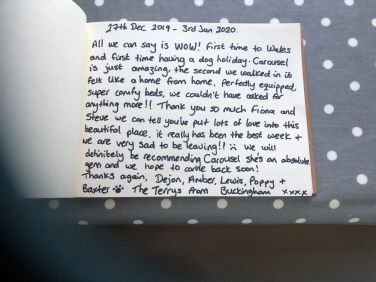 27th Dec 2019 - 3rd Jan 2020.
All we can say is WOW! First time to Wales
and first time having a dog holiday. Carousel
is just amazing, the second we walked in it
felt like a home from home. Perfectly equipped,
super comfy beds, we couldn't have asked for
anything more!! Thank you so much Fiona and
Steve we can tell you've put lots of love into this
beautiful place, it really has been the best week +
we are very sad to be leaving!! :( We will
definitely be recommending Carousel she's an absolute
gem and we hope to come back soon!
Thanks again, Dejon, Amber, Lewis, Poppy +
Baxter The Terrys from Buckingham xxxx